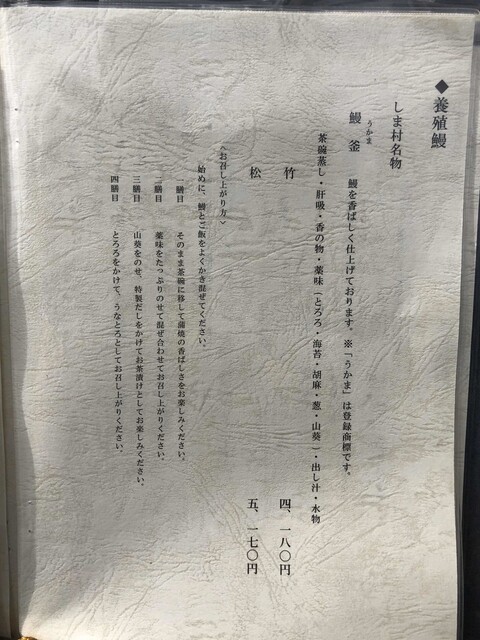 ◆養殖鰻
しま村名物
うかま
鰻釜 鰻を香ばしく仕上げております。※「うかま」は登録商標です。
茶碗蒸し・肝吸・香の物・薬味(とろろ・海苔・胡麻・葱・山葵)・出し汁・水物
竹 四、一八〇円
松 五、一七〇円
〈お召し上がり方〉
始めに、鰻とご飯をよくかき混ぜてください。
一膳目 そのまま茶碗に移して蒲焼の香ばしさをお楽しみください。
二膳目 薬味をたっぷりのせて混ぜ合わせてお召し上がりください。
三膳目 山葵をのせ、特製だしをかけてお茶漬けとしてお楽しみください。
四膳目 とろろをかけて、うなとろとしてお召し上がりください。